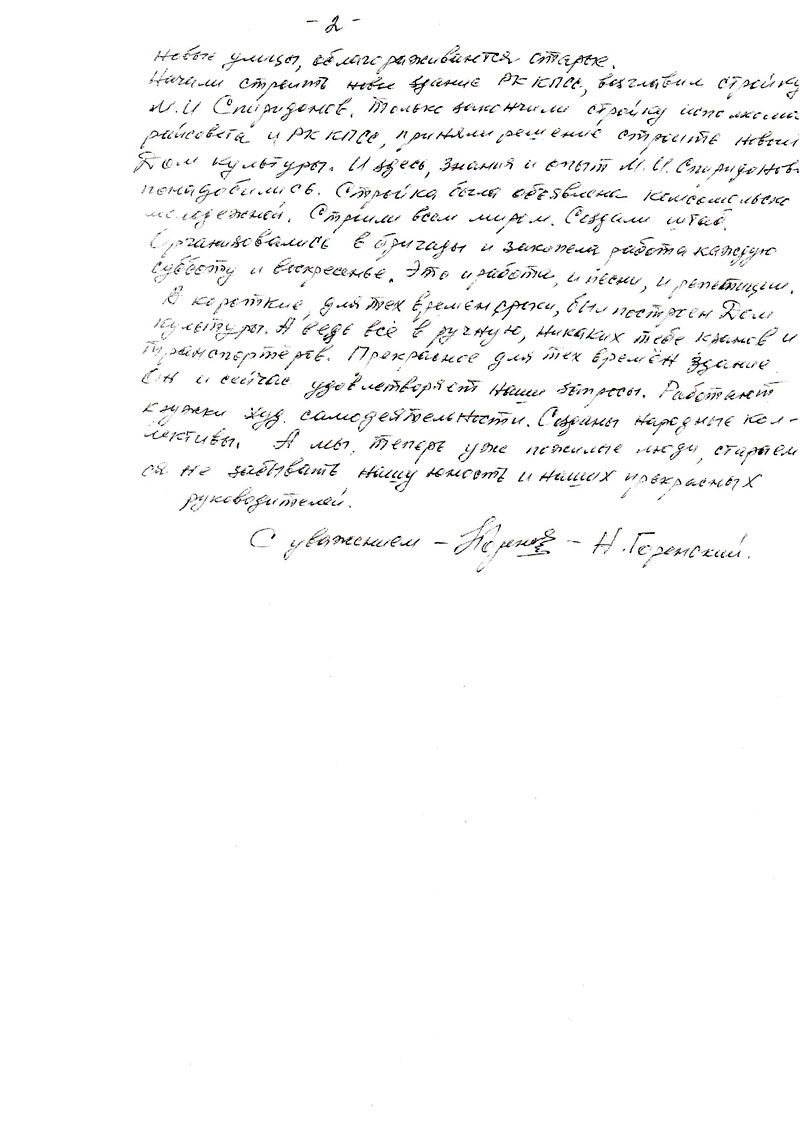 - 2 -
новые улицы, облагораживаются старые.
Начали строить новое здание РК КПСС, возглавил стройку
М.И Спиридонов. Только закончили стройку исполкома
райсовета и РК КПСС, приняли решение строить новый
Дом культуры. И здесь, знания и опыт М.И. Спиридонова
понадобились. Стройка была объявлена комсомольско
молодежной. Строили всем миром. Создали штаб.
Организовались в бригады и закипела работа каждую
субботу и воскресенье. Это и работа, и песни, и репетиции.
В короткие, для тех времен сроки, был построен Дом
культуры. А ведь всё в ручную, никаких тебе кранов и
транспортёров. Прекрасное для тех времён здание.
Он и сейчас удовлетворяет наши запросы. Работают
кружки худ. самодеятельности. Созданы народные кол-
лективы. А мы, теперь уже пожилые люди, стараем
ся не забывать нашу юность и наших прекрасных
руководителей.
С уважением - - Н. Горенский.